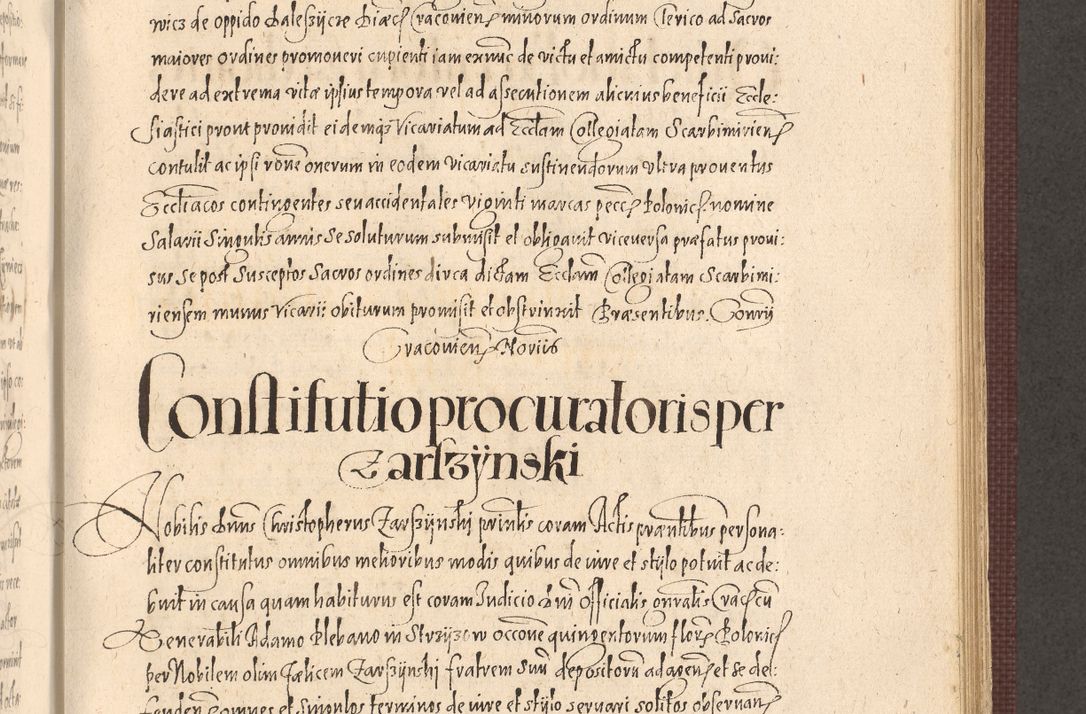 wicz de oppido Dalessÿcze Diæc̃ Cracovien̄ minorum ordinum Clerico ad sacros
maiores ordines promoueri cupienti iam exnunc de victu et amictu competenti proui:
dere ad extrema vitæ ipsius tempora vel ad assecutionem alicuius beneficii Eccle:
siastici prout prouidit eidemqz Vicariatum ad Ecclam Collegiatam Scarbimirien̄
contulit ac ipsi rōne onerum in eodem vicariatu sustinendorum ultra prouentus
Eccliacos contingentes seu accidentales viginti marcas pecc̄ Polonic̄ nomine
Salarii Singulis annis se soluturum submisit et obligauit viceversa præfatus proui:
sus se post susceptos sacros ordines circa dictam Ecclam̄ Collegiatam Scarbimi:
riensem munus vicarii obiturum promisit et obstrinxit Præsentibus. Conr̄ij
Cracovien̄ Noriis
Constitutio procuratoris per
Zarszÿnski
Nobilis Dnus Christopherus Zarszijnski prinlis coram Actis præntibus persona:
liter constitutus omnibus melioribus modis quibus de iure et stijlo potuit ac de:
buit in causa quam habiturus est coram Iudicio Dni Officialis gnralis Crac̄ cū
Venerabili Adamo Plebano in Strzijzow occōne quingentorum flor̄ Polonic̄
per Nobilem olim Fælicem Zarszÿnski fratrem suū depositorū ad agen̄ et se de:
fenden̄ omnes et singulos terminos de iure et stijlo seruari solitos obseruan̄